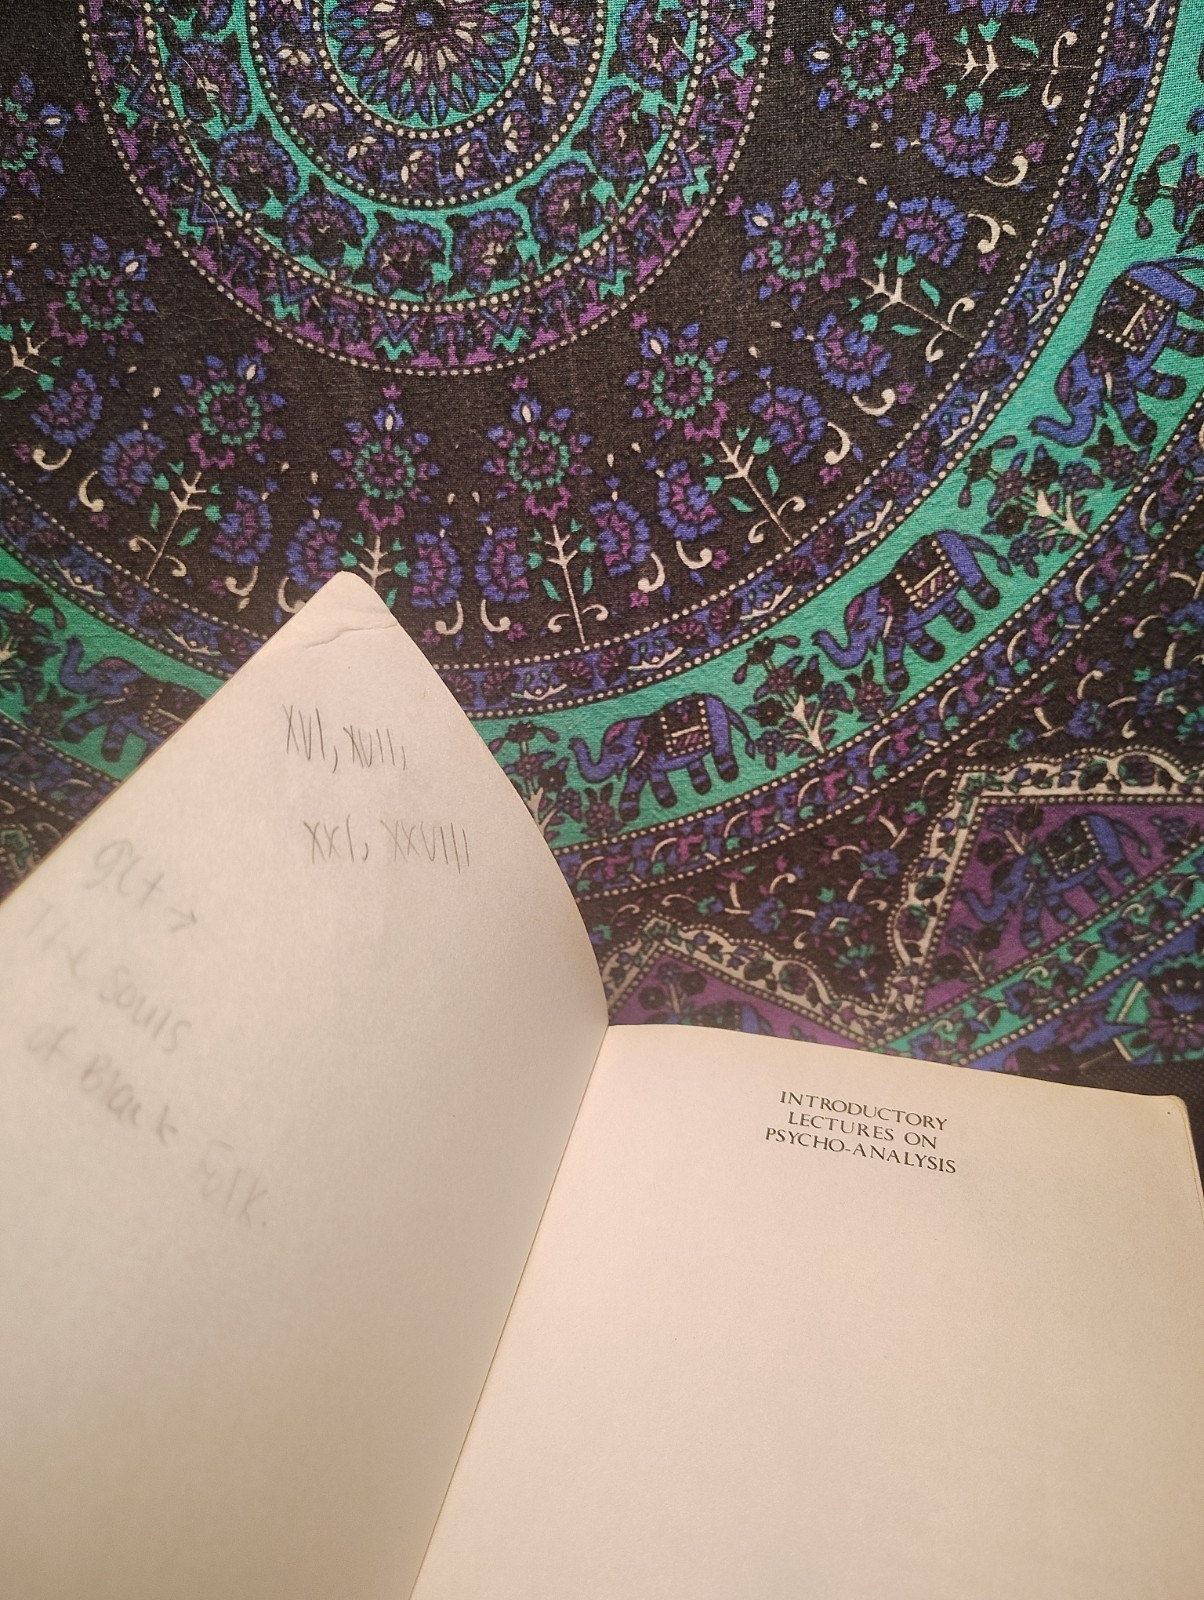 XVI, XVII,
XXI, XXVIII
get →
The souls
of Black Folk.
INTRODUCTORY
LECTURES ON
PSYCHO-ANALYSIS